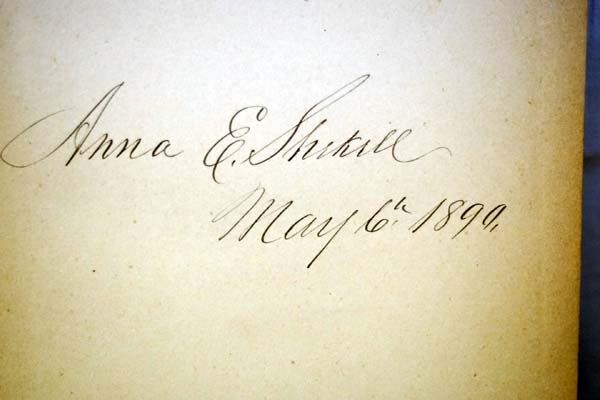 Anna E. Shikell
May 6th 1899.